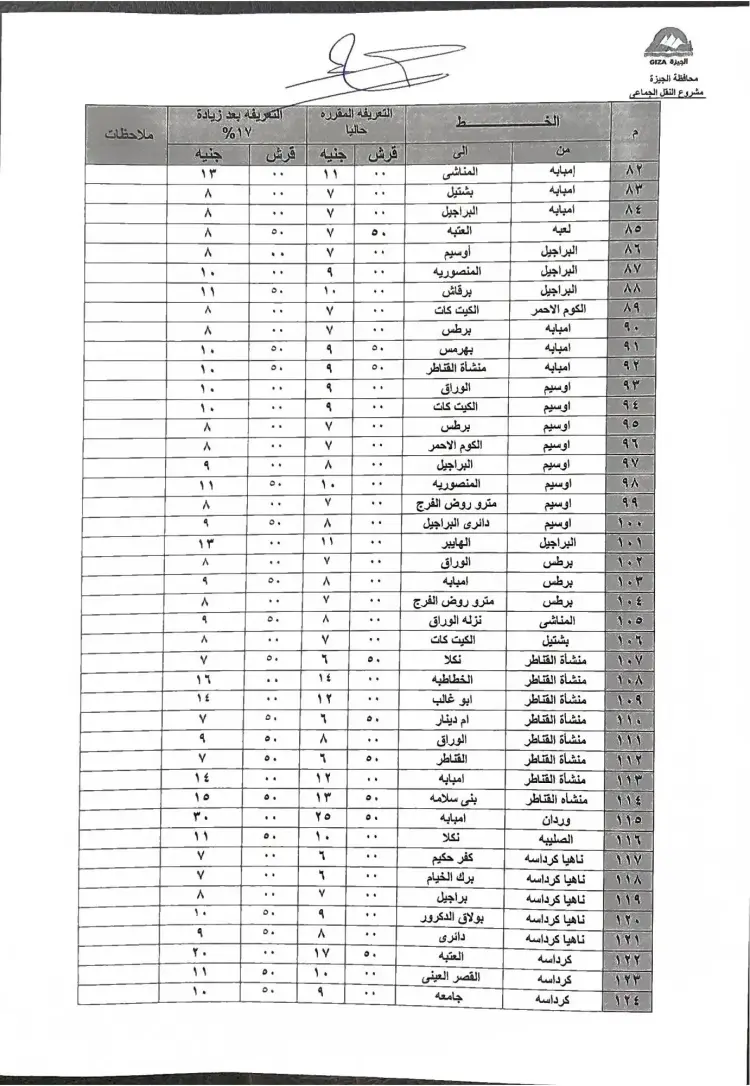 الجيزة GIZA
محافظة الجيزة
مشروع النقل الجماعى
م الخط التعريفه المقررة حاليا التعريفه بعد زيادة ١٧% ملاحظات
من الى قرش جنيه قرش جنيه
٨٢ إمبابه المناشى ٠٠ ١١ ٠٠ ١٣
٨٣ امبابه بشتيل ٠٠ ٧ ٠٠ ٨
٨٤ امبابه البراجيل ٠٠ ٧ ٠٠ ٨
٨٥ لعبه العتبه ٥٠ ٧ ٥٠ ٨
٨٦ البراجيل أوسيم ٠٠ ٧ ٠٠ ٨
٨٧ البراجيل المنصوريه ٠٠ ٩ ٠٠ ١٠
٨٨ البراجيل برقاش ٠٠ ١٠ ٥٠ ١١
٨٩ الكوم الاحمر الكيت كات ٠٠ ٧ ٠٠ ٨
٩٠ امبابه برطس ٠٠ ٧ ٠٠ ٨
٩١ امبابه بهرمس ٥٠ ٩ ٥٠ ١٠
٩٢ امبابه منشأة القناطر ٥٠ ٩ ٥٠ ١٠
٩٣ اوسيم الوراق ٠٠ ٩ ٠٠ ١٠
٩٤ اوسيم الكيت كات ٠٠ ٩ ٠٠ ١٠
٩٥ اوسيم برطس ٠٠ ٧ ٠٠ ٨
٩٦ اوسيم الكوم الاحمر ٠٠ ٧ ٠٠ ٨
٩٧ اوسيم البراجيل ٠٠ ٨ ٠٠ ٩
٩٨ اوسيم المنصوريه ٠٠ ١٠ ٥٠ ١١
٩٩ اوسيم مترو روض الفرج ٠٠ ٧ ٠٠ ٨
١٠٠ اوسيم دائرى البراجيل ٠٠ ٨ ٥٠ ٩
١٠١ البراجيل الهايبر ٠٠ ١١ ٠٠ ١٣
١٠٢ برطس الوراق ٠٠ ٧ ٠٠ ٨
١٠٣ برطس امبابه ٠٠ ٨ ٥٠ ٩
١٠٤ برطس مترو روض الفرج ٠٠ ٧ ٠٠ ٨
١٠٥ المناشى نزله الوراق ٠٠ ٨ ٥٠ ٩
١٠٦ بشتيل الكيت كات ٠٠ ٧ ٠٠ ٨
١٠٧ منشأة القناطر نكلا ٥٠ ٦ ٥٠ ٧
١٠٨ منشأة القناطر الخطاطبه ٠٠ ١٤ ٠٠ ١٦
١٠٩ منشأة القناطر ابو غالب ٠٠ ١٢ ٠٠ ١٤
١١٠ منشأة القناطر ام دينار ٥٠ ٦ ٥٠ ٧
١١١ منشأة القناطر الوراق ٠٠ ٨ ٥٠ ٩
١١٢ منشأة القناطر القناطر ٥٠ ٦ ٥٠ ٧
١١٣ منشأة القناطر امبابه ٠٠ ١٢ ٠٠ ١٤
١١٤ منشاه القناطر بنى سلامه ٥٠ ١٣ ٥٠ ١٥
١١٥ وردان امبابه ٥٠ ٢٥ ٠٠ ٣٠
١١٦ الصليبه نكلا ٠٠ ١٠ ٥٠ ١١
١١٧ ناهيا كرداسه كفر حكيم ٠٠ ٦ ٠٠ ٧
١١٨ ناهيا كرداسه برك الخيام ٠٠ ٦ ٠٠ ٧
١١٩ ناهيا كرداسه براجيل ٠٠ ٧ ٠٠ ٨
١٢٠ ناهيا كرداسه بولاق الدكرور ٠٠ ٩ ٥٠ ١٠
١٢١ ناهيا كرداسه دائرى ٠٠ ٨ ٥٠ ٩
١٢٢ كرداسه العتبه ٥٠ ١٧ ٠٠ ٢٠
١٢٣ كرداسه القصر العينى ٠٠ ١٠ ٥٠ ١١
١٢٤ كرداسه جامعه ٠٠ ٩ ٥٠ ١٠